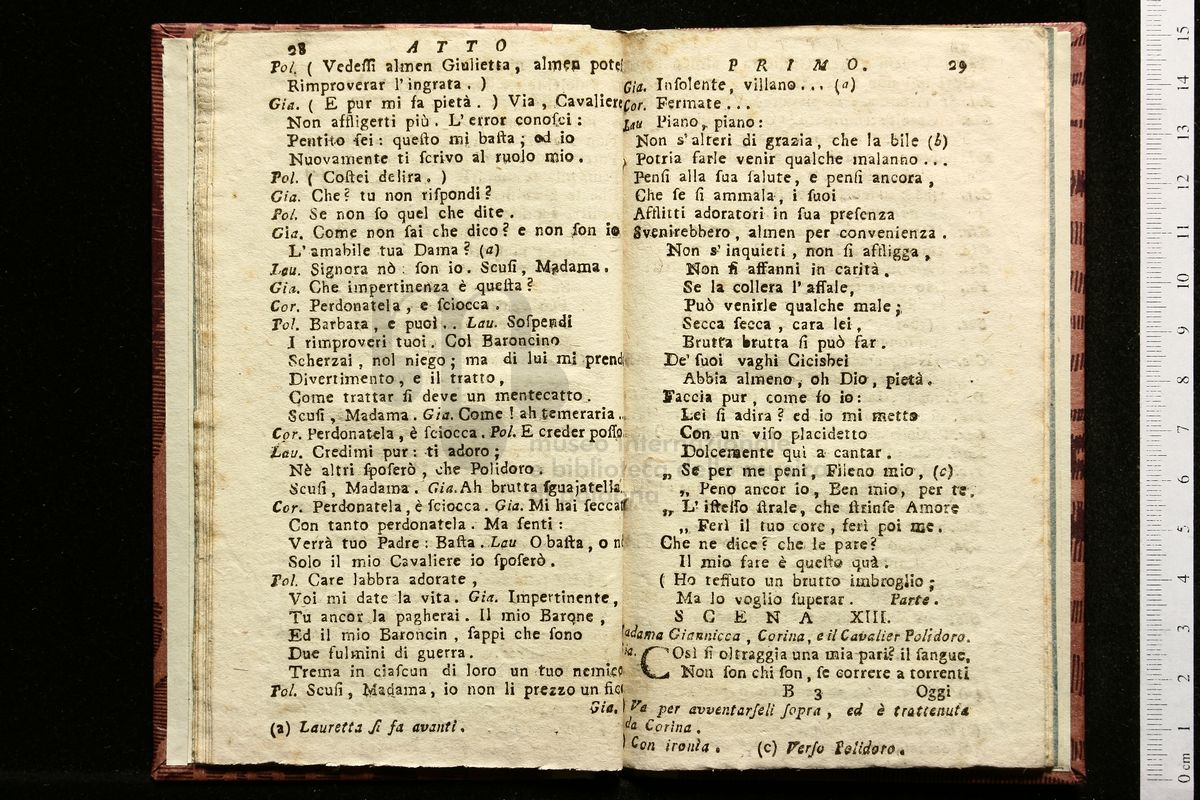 28 ATTO
Pol. ( Vedeſſi almen Giulietta, almen pote
Rimproverar l'ingrata. )
Gia. ( E pur mi fa pietà. ) Via, Cavaliere
Non affligerti più. L'error conoſci:
Pentito ſei: queſto mi baſta; ed io
Nuovamente ti ſcrivo al ruolo mio.
Pol. ( Coſtei delira. )
Gia. Che? tu non riſpondi?
Pol. Se non ſo quel che dite.
Gia. Come non ſai che dico? e non ſon io
L'amabile tua Dama? (a)
Lau. Signora nò: ſon io. Scuſi, Madama.
Gia. Che impertinenza è queſta?
Cor. Perdonatela, e ſciocca.
Pol. Barbara, e puoi.. Lau. Soſpendi
I rimproveri tuoi. Col Baroncino
Scherzai, nol niego; ma di lui mi prend
Divertimento, e il tratto,
Come trattar ſi deve un mentecatto.
Scuſi, Madama. Gia. Come! ah temeraria.
Cor. Perdonatela, è ſciocca. Pol. E creder poſſo
Lau. Credimi pur: ti adoro;
Nè altri ſpoſerò, che Polidoro.
Scuſi, Madama. Gia. Ah brutta ſguajatella
Cor. Perdonatela, è ſciocca. Gia. Mi hai ſeccat
Con tanto perdonatela. Ma ſenti:
Verrà tuo Padre: Baſta. Lau O baſta, o n
Solo il mio Cavaliere io ſpoſerò.
Pol. Care labbra adorate,
Voi mi date la vita. Gia. Impertinente,
Tu ancor la pagherai. Il mio Barone,
Ed il mio Baroncin, ſappi che ſono
Due fulmini di guerra.
Trema in ciaſcun di loro un tuo nemico
Pol. Scuſi, Madama, io non li prezzo un fico
Gia.
(a) Lauretta ſi fa avanti.
PRIMO. 29
Gia. Inſolente, villano... (a)
Cor. Fermate...
Lau Piano, piano:
Non s'alteri di grazia, che la bile (b)
Potria farle venir qualche malanno...
Penſi alla ſua ſalute, e penſi ancora,
Che ſe ſi ammala, i ſuoi
Afflitti adoratori in ſua preſenza
Svenirebbero, almen per convenienza.
Non s'inquieti, non ſi affligga,
Non ſi affanni in carità.
Se la collera l'aſſale,
Può venirle qualche male;
Secca ſecca, cara lei,
Brutta brutta ſi può far.
De' ſuoi vaghi Cicisbei
Abbia almeno, oh Dio, pietà.
Faccia pur, come fo io:
Lei ſi adira? ed io mi metto
Con un viſo placidetto
Dolcemente qui a cantar.
„ Se per me peni, Fileno mio, (c)
„ Peno ancor io, Ben mio, per te.
„ L'iſteſſo ſtrale, che ſtrinſe Amore
„ Ferì il tuo core, ferì poi me.
Che ne dice? che le pare?
Il mio fare è queſto quà.
( Ho teſſuto un brutto imbroglio;
Ma lo voglio ſuperar. Parte.
SCENA XIII.
adama Giannicca, Corina, e il Cavalier Polidoro.
ia. Così ſi oltraggia una mia pari? il ſangue,
Non ſon chi ſon, ſe correre a torrenti
B 3 Oggi
) Va per avventarſeli ſopra, ed è trattenuta
da Corina.
) Con ironìa. (c) Verſo Polidoro.
museo internazionale
e biblioteca della musica
di bologna
0 cm 1 2 3 4 5 6 7 8 9 10 11 12 13 14 15